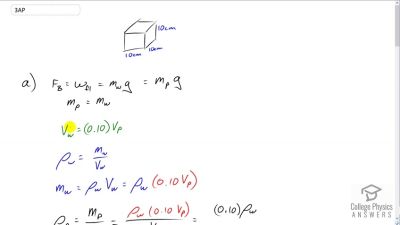 3AP
10cm
10cm 10cm
a) F_B = w_fl = m_w g = m_p g
m_p = m_w
V_w = (0.10) V_p
ρ_w = m_w / V_w
m_w = ρ_w V_w = ρ_w (0.10 V_p)
m_p = ρ_w (0.10 V_p) = (0.10) ρ_w
College Physics
ANSWERS